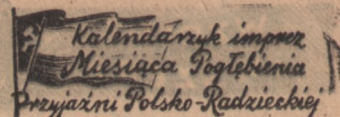 Kalendarzyk imprez
Miesiąca Pogłębienia
Przyjaźni Polsko-Radzieckiej